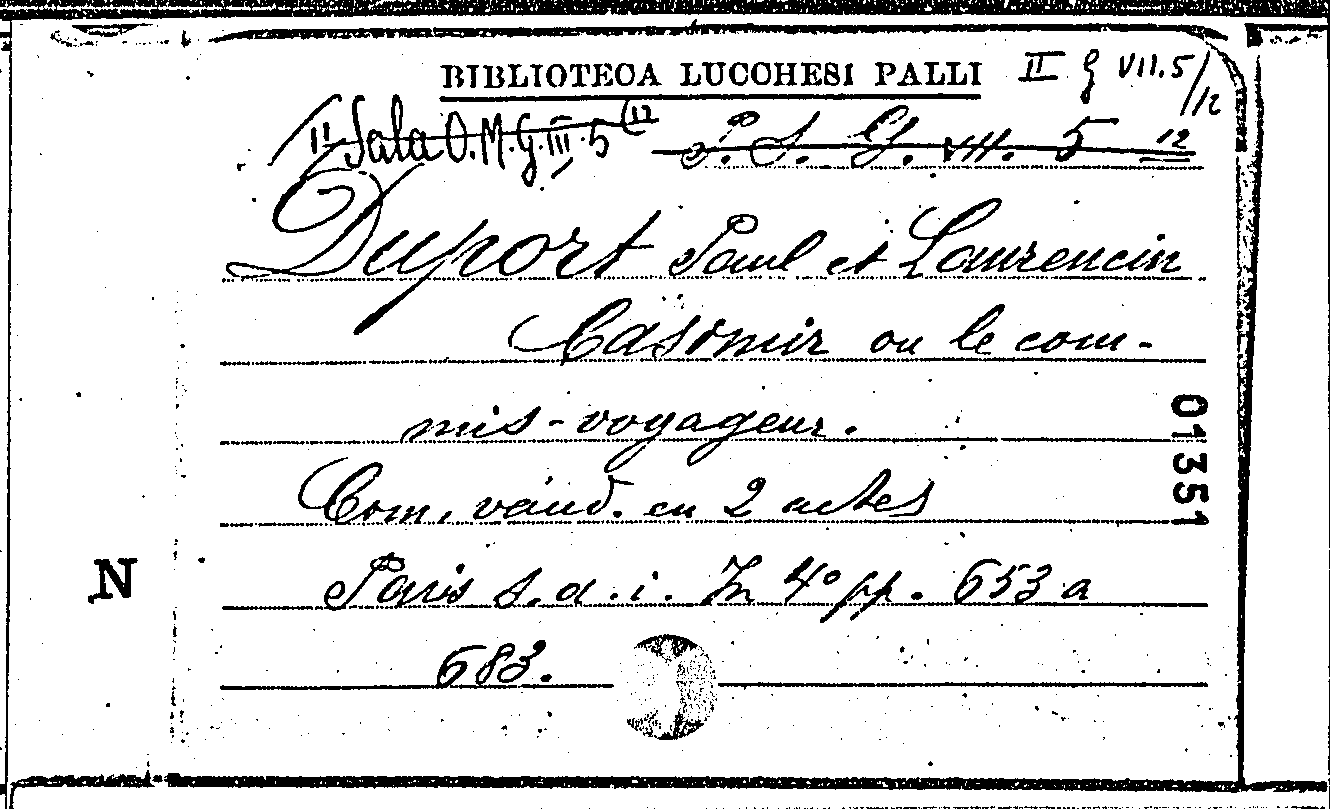 BIBLIOTECA LUCCHESI PALLI II G VII.5/12
II Sala O.M.G.III.5 (12 P. S. G. VII. 5 12
Duport Paul et Laurencin
Casomir ou le com-
mis-voyageur.
Com. vaud. en 2 actes
Paris s.d.i. In 4° pp. 653 a
683.
01351
N